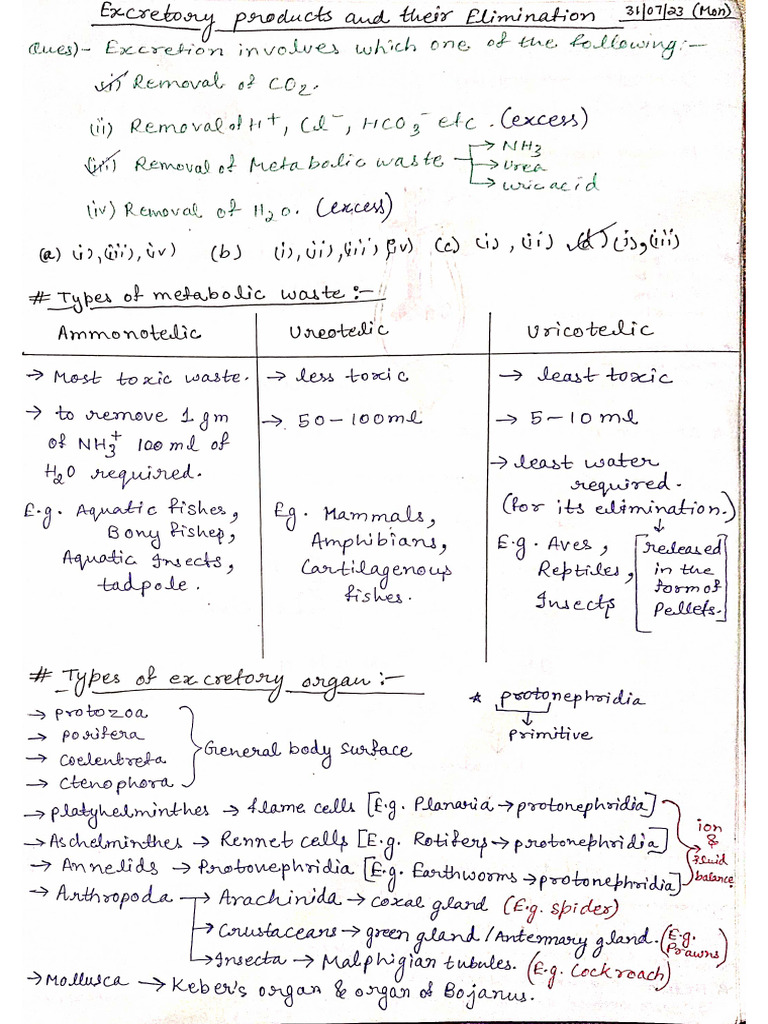 Excretory products and their Elimination 31/07/23 (Mon)
(Ques)- Excretion involves which one of the following:-
(i) Removal of CO2.
(ii) Removal of H+, Cl-, HCO3- etc. (excess)
(iii) Removal of Metabolic waste → NH3
→ Urea
→ Uric acid
(iv) Removal of H2O. (excess)
(a) (i), (iii), (iv) (b) (i), (ii), (iii) & (iv) (c) (i), (ii) (d) (i), (iii)
# Types of metabolic waste :-
Ammonotelic
→ Most toxic waste.
→ to remove 1 gm
of NH3+ 100 ml of
H2O required.
E.g. Aquatic fishes,
Bony fishes,
Aquatic Insects,
tadpole.
Ureotelic
→ less toxic
→ 50-100ml
Eg. Mammals,
Amphibians,
Cartilagenous
fishes.
Uricotelic
→ least toxic
→ 5-10 ml
→ least water
required.
(for its elimination.)
E.g. Aves,
Reptiles,
Insects
[released
in the
form of
Pellets.]
# Types of excretory organ :-
→ protozoa
→ porifera
→ Coelentreta
→ Ctenophora
General body surface
* protonephridia
↓
primitive
→ platyhelminthes → flame cells [E.g. Planaria → protonephridia]
→ Aschelminthes → Rennet cells [E.g. Rotifers → protonephridia]
→ Annelids → Protonephridia [E.g. Earthworms → protonephridia]
→ ion
&
fluid
balance
→ Arthropoda → Arachinida → coxal gland (E.g. spider)
→ Crustaceans → green gland/Antennary gland. (E.g. Prawns)
→ Insecta → Malphigian tubules. (E.g. Cockroach)
→ Mollusca → Keber's organ & organ of Bojanus.